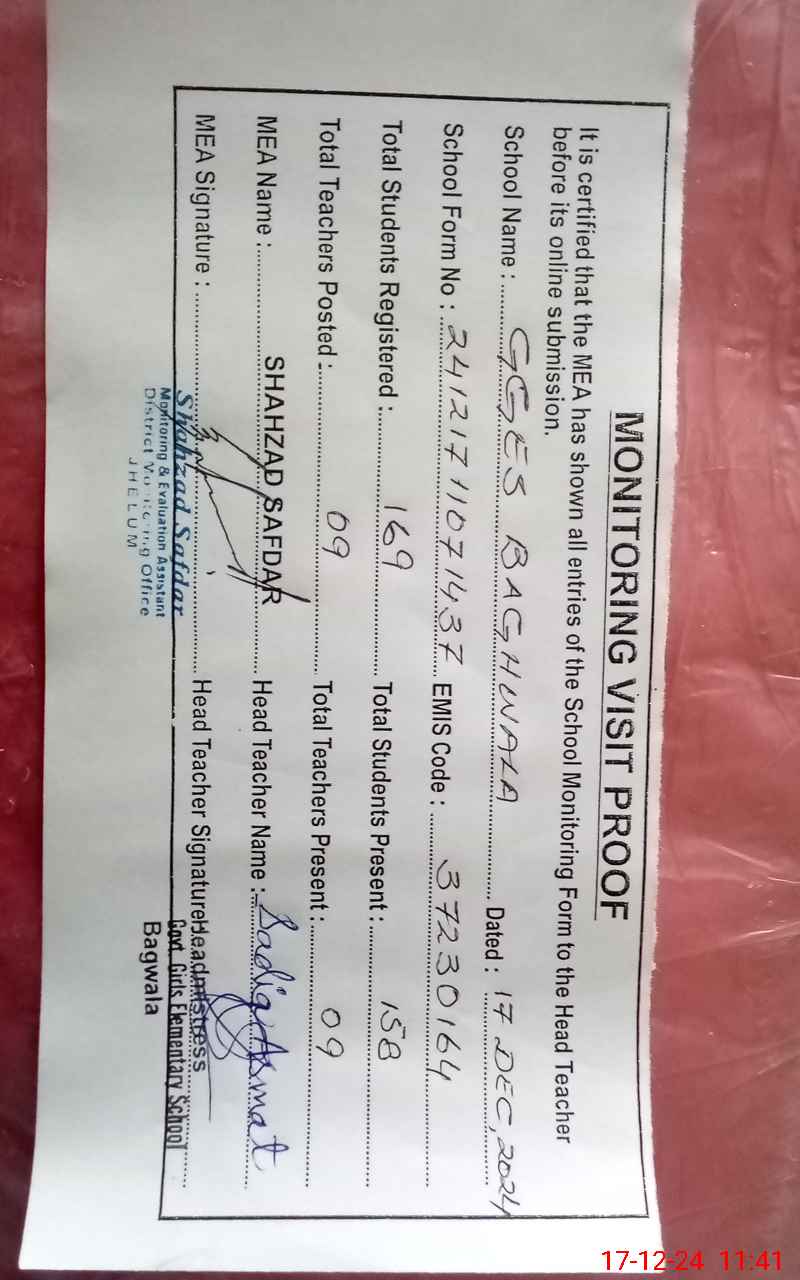 MONITORING VISIT PROOF
It is certified that the MEA has shown all entries of the School Monitoring Form to the Head Teacher
before its online submission.
School Name : GGES BAGHWALA Dated : 17 DEC, 2024
School Form No : 24121711071437 EMIS Code : 37230164
Total Students Registered : 169 Total Students Present : 158
Total Teachers Posted : 09 Total Teachers Present : 09
MEA Name : SHAHZAD SAFDAR Head Teacher Name : Sadiqa Asmat
MEA Signature : Head Teacher Signature
Shahzad Safdar
Monitoring & Evaluation Assistant
District Monitoring Office
JHELUM
Headmistress
Govt. Girls Elementary School
Bagwala
17-12-24 11:41